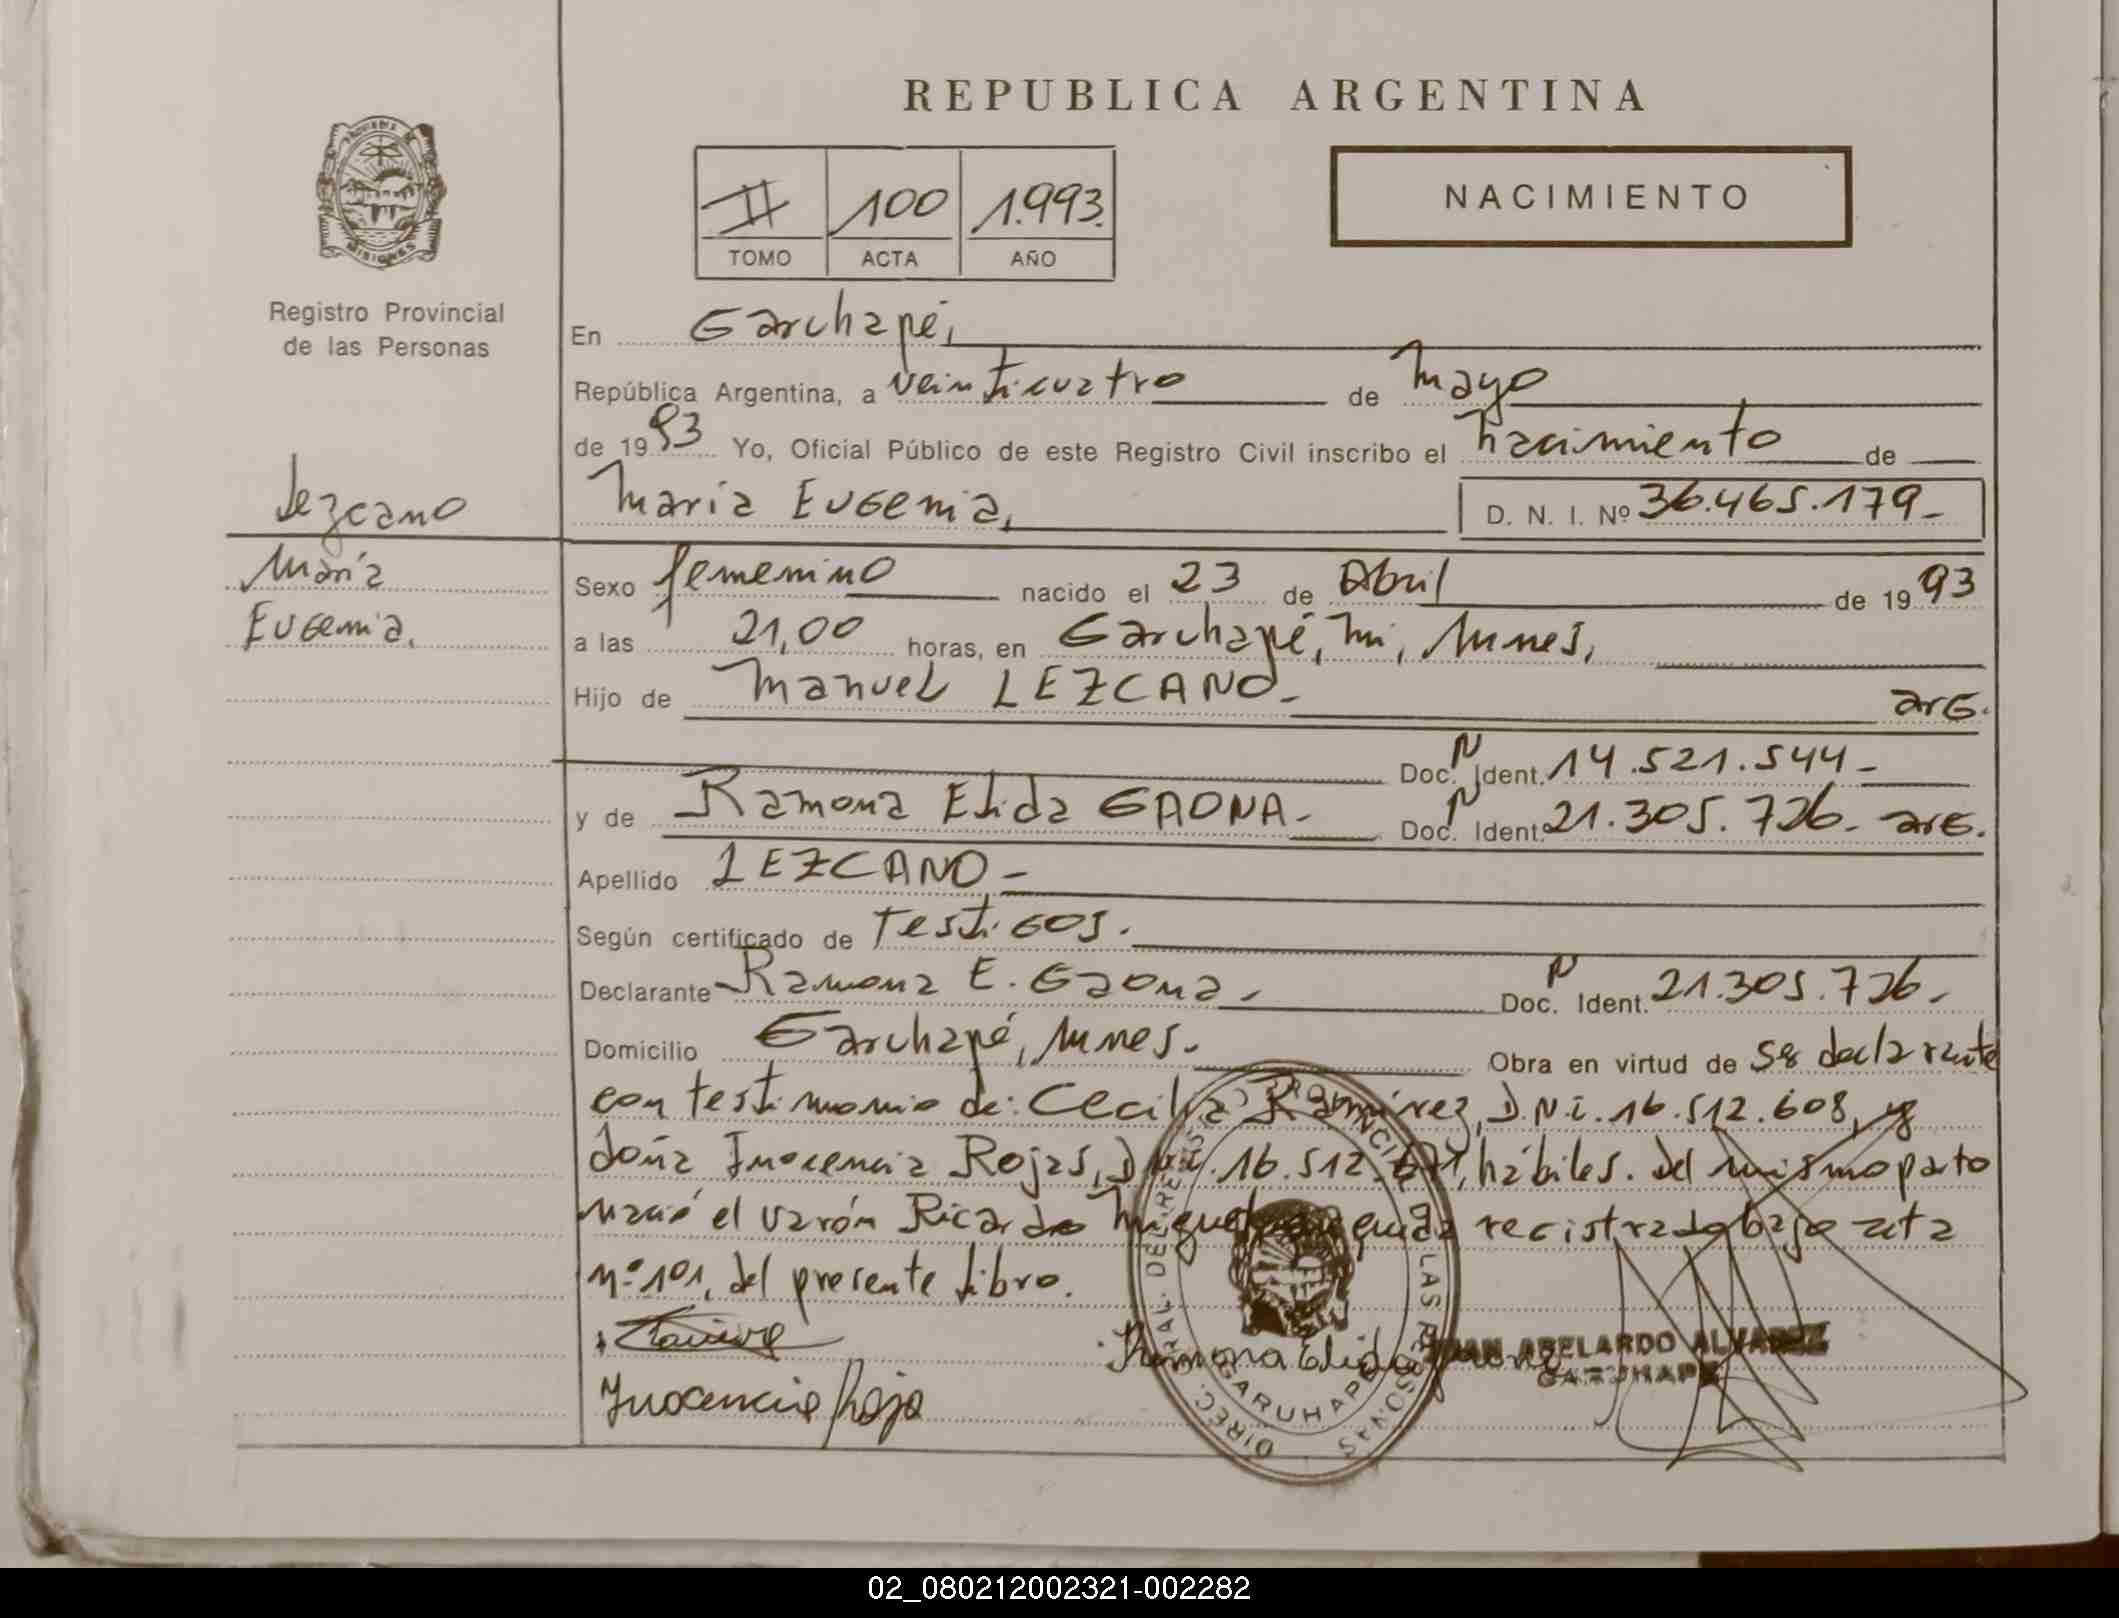 REPUBLICA ARGENTINA
PROVINCIA DE
MISIONES
Registro Provincial
de las Personas
II 100 1.993.
TOMO ACTA AÑO
NACIMIENTO
En Garuhapé,
República Argentina, a veinticuatro de Mayo
de 1993 Yo, Oficial Público de este Registro Civil inscribo el nacimiento de
María Eugenia, D. N. I. Nº 36.465.179-
Lezcano
María
Eugenia.
Sexo femenino nacido el 23 de Abril de 1993
a las 21,00 horas, en Garuhapé, Mi,
Hijo de Manuel LEZCANO- arg.
Doc. N Ident. 14.521.544-
y de Ramona Elida GAONA- Doc. N Ident. 21.305.726- arg.
Apellido LEZCANO-
Según certificado de Testigos.
Declarante Ramona E. Gaona- Doc. N Ident. 21.305.726-
Domicilio Garuhapé, Obra en virtud de ser declarante
con testimonio de: Cecilia Ramírez, D.N.i. 16.512.608, y
doña Inocencia Rojas, D.N.i. 16.512. hábiles. Del mismo parto
nació el varón Ricardo Miguel que queda registrado bajo acta
nº 101, del presente libro.
Ramona Elida Gaona
JUAN ABELARDO ALVAREZ
GARUHAPE
Inocencia Roja
DIREC. GRAL. DEL REGIST. PROVINCIAL DE LAS PERSONAS
GARUHAPE
02_080212002321-002282